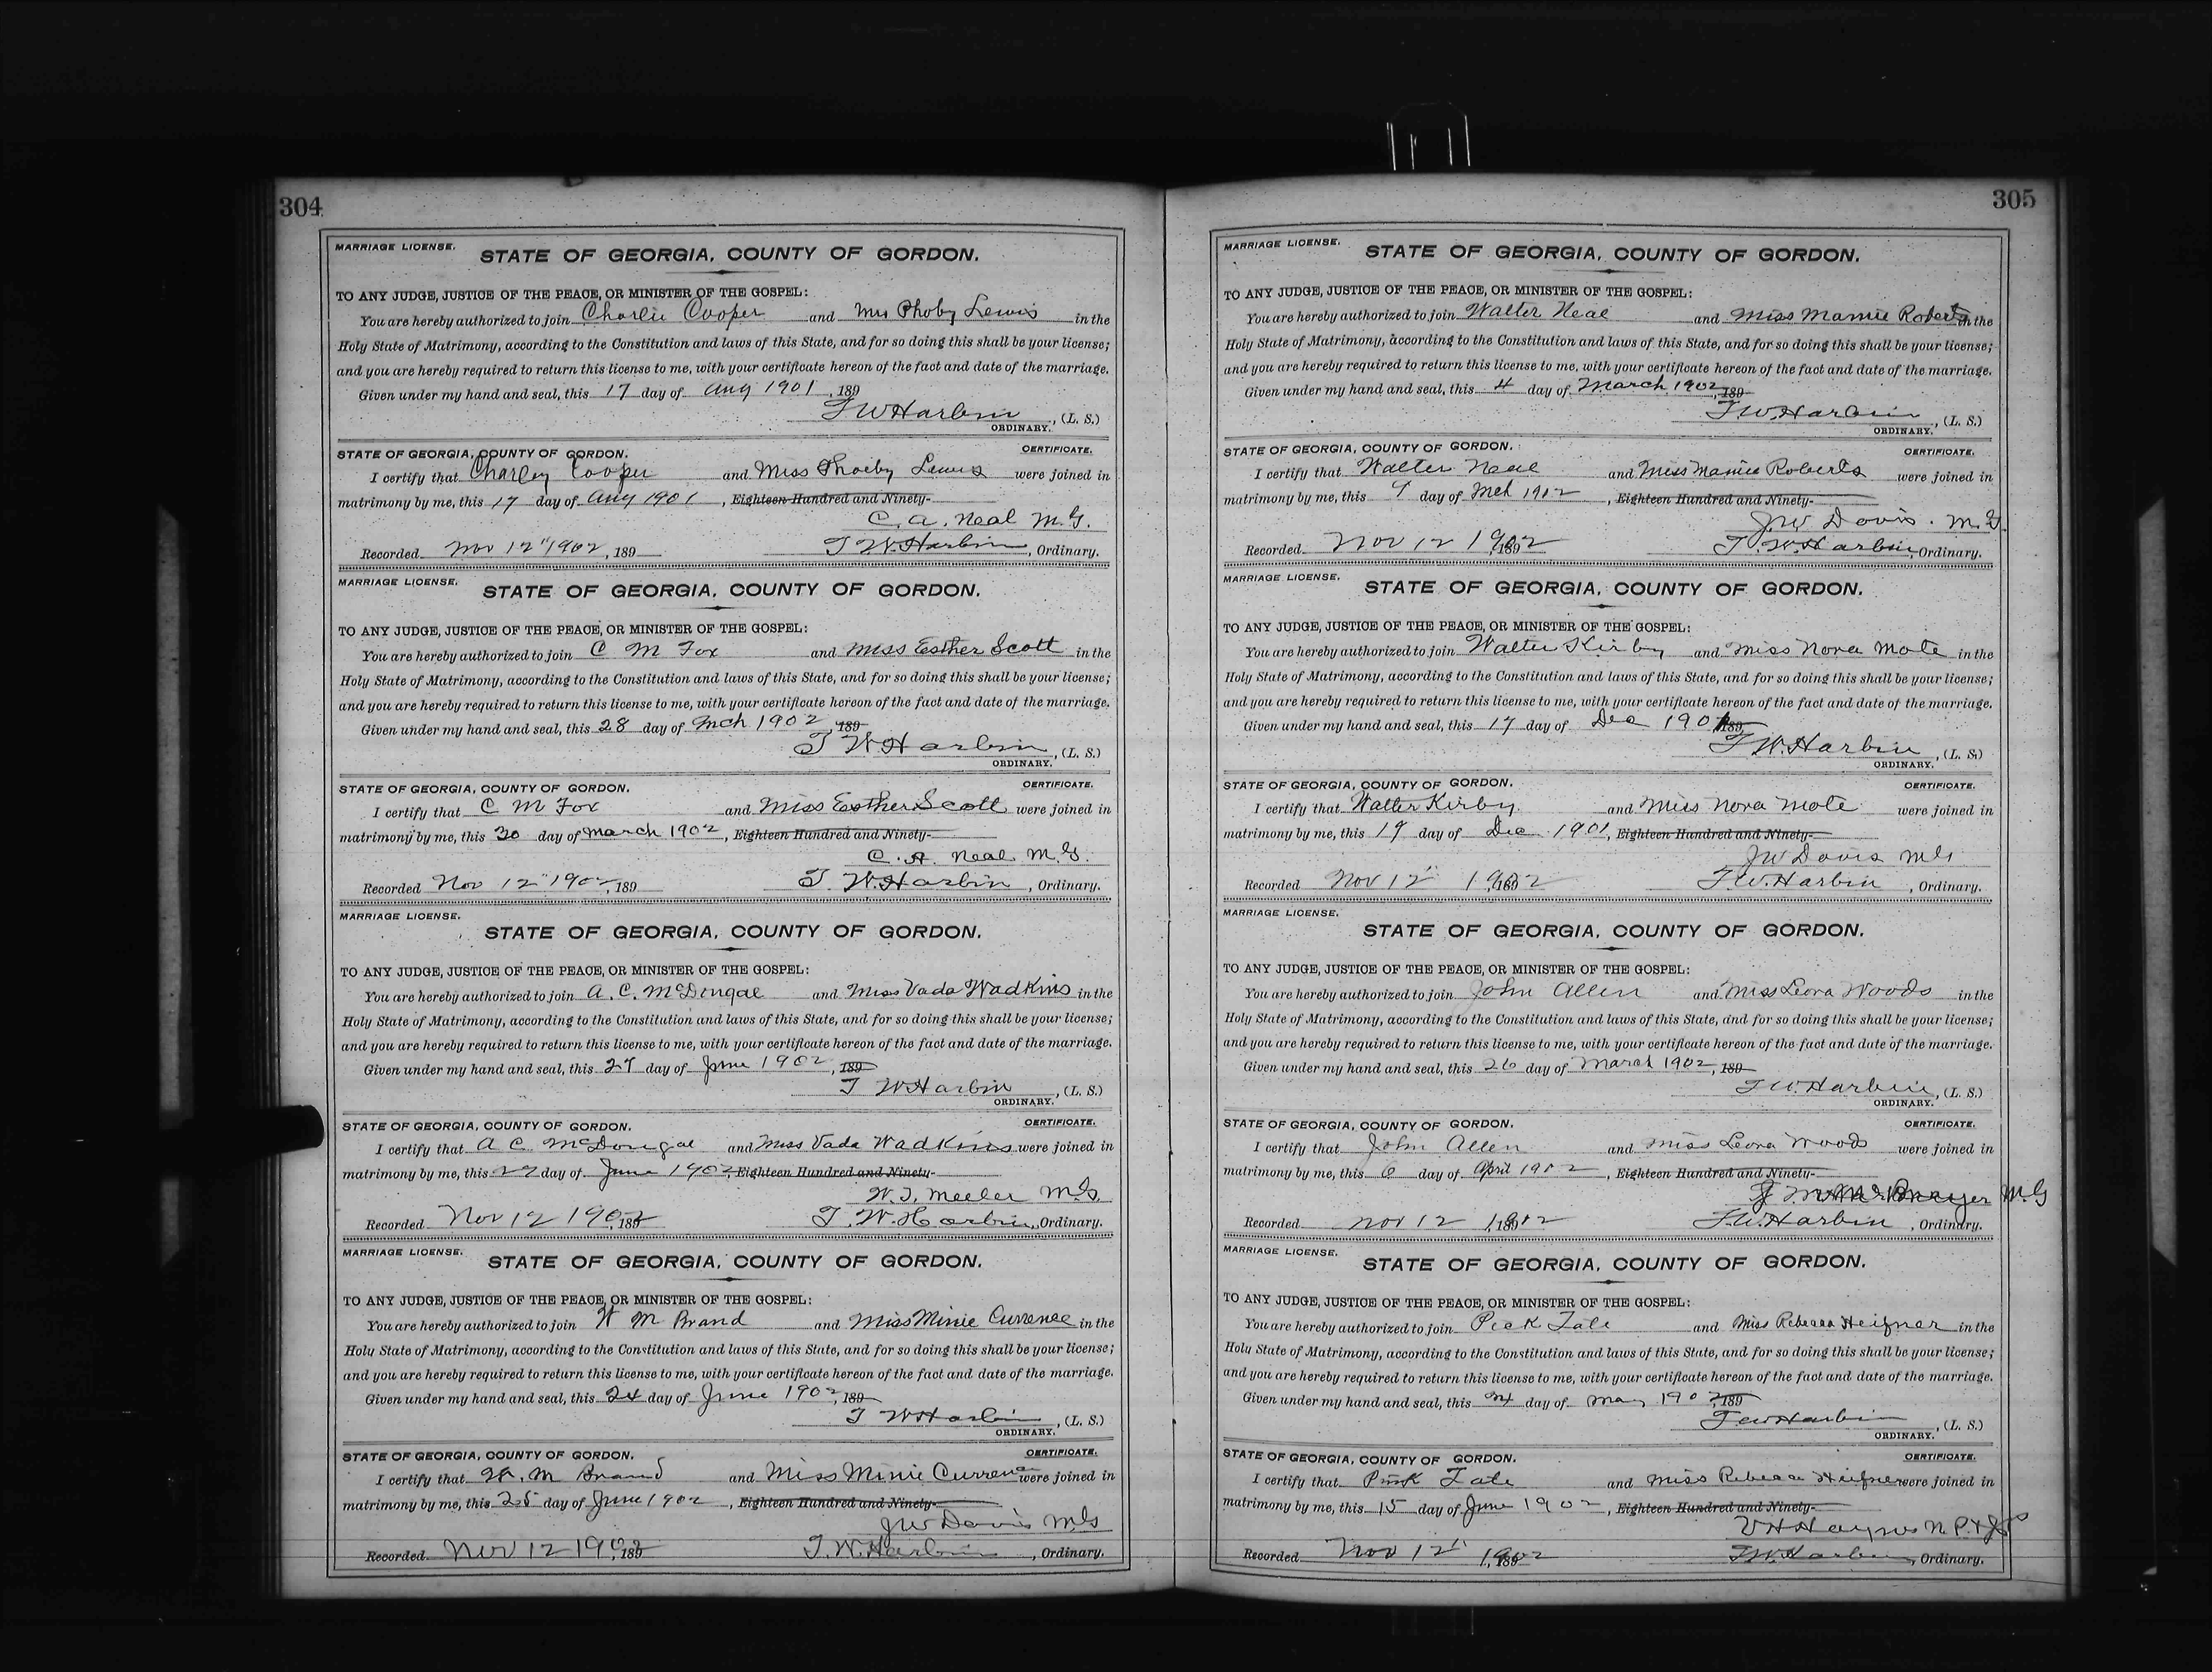 304
MARRIAGE LICENSE.
STATE OF GEORGIA, COUNTY OF GORDON.
TO ANY JUDGE, JUSTICE OF THE PEACE, OR MINISTER OF THE GOSPEL:
You are hereby authorized to join Charlie Cooper and Mrs Phoby Lewis in the
Holy State of Matrimony, according to the Constitution and laws of this State, and for so doing this shall be your license;
and you are hereby required to return this license to me, with your certificate hereon of the fact and date of the marriage.
Given under my hand and seal, this 17 day of Aug 1901, 189
T W Harbin, (L. S.)
ORDINARY.
STATE OF GEORGIA, COUNTY OF GORDON. CERTIFICATE.
I certify that Charley Cooper and Miss Phoeby Lewis were joined in
matrimony by me, this 17 day of Aug 1901, Eighteen Hundred and Ninety-
C. A. Neal M.G.
Recorded Nov 12" 1902, 189 T. W. Harbin, Ordinary.
MARRIAGE LICENSE.
STATE OF GEORGIA, COUNTY OF GORDON.
TO ANY JUDGE, JUSTICE OF THE PEACE, OR MINISTER OF THE GOSPEL:
You are hereby authorized to join C M Fox and Miss Esther Scott in the
Holy State of Matrimony, according to the Constitution and laws of this State, and for so doing this shall be your license;
and you are hereby required to return this license to me, with your certificate hereon of the fact and date of the marriage.
Given under my hand and seal, this 28 day of Mch 1902, 189
T W Harbin, (L. S.)
ORDINARY.
STATE OF GEORGIA, COUNTY OF GORDON. CERTIFICATE.
I certify that C M Fox and Miss Esther Scott were joined in
matrimony by me, this 30 day of March 1902, Eighteen Hundred and Ninety-
C. A. Neal M.G.
Recorded Nov 12" 1902, 189 T. W. Harbin, Ordinary.
MARRIAGE LICENSE.
STATE OF GEORGIA, COUNTY OF GORDON.
TO ANY JUDGE, JUSTICE OF THE PEACE, OR MINISTER OF THE GOSPEL:
You are hereby authorized to join A. C. McDougal and Miss Vada Wadkins in the
Holy State of Matrimony, according to the Constitution and laws of this State, and for so doing this shall be your license;
and you are hereby required to return this license to me, with your certificate hereon of the fact and date of the marriage.
Given under my hand and seal, this 27 day of June 1902, 189
T W Harbin, (L. S.)
ORDINARY.
STATE OF GEORGIA, COUNTY OF GORDON. CERTIFICATE.
I certify that A C. McDougal and Miss Vada Wadkins were joined in
matrimony by me, this 29 day of June 1902, Eighteen Hundred and Ninety-
W. T. Meeler M.G.
Recorded Nov 12 1902, 189 T. W. Harbin, Ordinary.
MARRIAGE LICENSE.
STATE OF GEORGIA, COUNTY OF GORDON.
TO ANY JUDGE, JUSTICE OF THE PEACE, OR MINISTER OF THE GOSPEL:
You are hereby authorized to join W M Brand and Miss Minie Currence in the
Holy State of Matrimony, according to the Constitution and laws of this State, and for so doing this shall be your license;
and you are hereby required to return this license to me, with your certificate hereon of the fact and date of the marriage.
Given under my hand and seal, this 24 day of June 1902, 189
T W Harbin, (L. S.)
ORDINARY.
STATE OF GEORGIA, COUNTY OF GORDON. CERTIFICATE.
I certify that W. M Brand and Miss Minie Currence were joined in
matrimony by me, this 25 day of June 1902, Eighteen Hundred and Ninety-
J W Davis M.G.
Recorded Nov 12 1902, 189 T. W. Harbin, Ordinary.
305
MARRIAGE LICENSE.
STATE OF GEORGIA, COUNTY OF GORDON.
TO ANY JUDGE, JUSTICE OF THE PEACE, OR MINISTER OF THE GOSPEL:
You are hereby authorized to join Walter Neal and Miss Mamie Roberts in the
Holy State of Matrimony, according to the Constitution and laws of this State, and for so doing this shall be your license;
and you are hereby required to return this license to me, with your certificate hereon of the fact and date of the marriage.
Given under my hand and seal, this 4 day of March 1902, 189
T. W. Harbin, (L. S.)
ORDINARY.
STATE OF GEORGIA, COUNTY OF GORDON. CERTIFICATE.
I certify that Walter Neal and Miss Mamie Roberts were joined in
matrimony by me, this 9 day of Mch 1902, Eighteen Hundred and Ninety-
J. W Davis. M.G.
Recorded Nov 12 1902, 189 T. W. Harbin, Ordinary.
MARRIAGE LICENSE.
STATE OF GEORGIA, COUNTY OF GORDON.
TO ANY JUDGE, JUSTICE OF THE PEACE, OR MINISTER OF THE GOSPEL:
You are hereby authorized to join Walter Kirby and Miss Nora Mote in the
Holy State of Matrimony, according to the Constitution and laws of this State, and for so doing this shall be your license;
and you are hereby required to return this license to me, with your certificate hereon of the fact and date of the marriage.
Given under my hand and seal, this 17 day of Dec 1901, 189
T W. Harbin, (L. S.)
ORDINARY.
STATE OF GEORGIA, COUNTY OF GORDON. CERTIFICATE.
I certify that Walter Kirby and Miss Nora Mote were joined in
matrimony by me, this 19 day of Dec 1901, Eighteen Hundred and Ninety-
J W Davis M.G.
Recorded Nov 12" 1902, 189 T. W. Harbin, Ordinary.
MARRIAGE LICENSE.
STATE OF GEORGIA, COUNTY OF GORDON.
TO ANY JUDGE, JUSTICE OF THE PEACE, OR MINISTER OF THE GOSPEL:
You are hereby authorized to join John Allen and Miss Leora Woods in the
Holy State of Matrimony, according to the Constitution and laws of this State, and for so doing this shall be your license;
and you are hereby required to return this license to me, with your certificate hereon of the fact and date of the marriage.
Given under my hand and seal, this 26 day of March 1902, 189
T W. Harbin, (L. S.)
ORDINARY.
STATE OF GEORGIA, COUNTY OF GORDON. CERTIFICATE.
I certify that John Allen and Miss Leora Woods were joined in
matrimony by me, this 6 day of April 1902, Eighteen Hundred and Ninety-
M.G
Recorded Nov 12 1902, 189 T. W. Harbin, Ordinary.
MARRIAGE LICENSE.
STATE OF GEORGIA, COUNTY OF GORDON.
TO ANY JUDGE, JUSTICE OF THE PEACE, OR MINISTER OF THE GOSPEL:
You are hereby authorized to join Pink Tate and Miss Rebecca Heifner in the
Holy State of Matrimony, according to the Constitution and laws of this State, and for so doing this shall be your license;
and you are hereby required to return this license to me, with your certificate hereon of the fact and date of the marriage.
Given under my hand and seal, this 24 day of May 1902, 189
T W Harbin, (L. S.)
ORDINARY.
STATE OF GEORGIA, COUNTY OF GORDON. CERTIFICATE.
I certify that Pink Tate and Miss Rebecca Heifner were joined in
matrimony by me, this 15 day of June 1902, Eighteen Hundred and Ninety-
V H Haynes N. P. & J P
Recorded Nov 12" 1902, 189 T. W. Harbin, Ordinary.